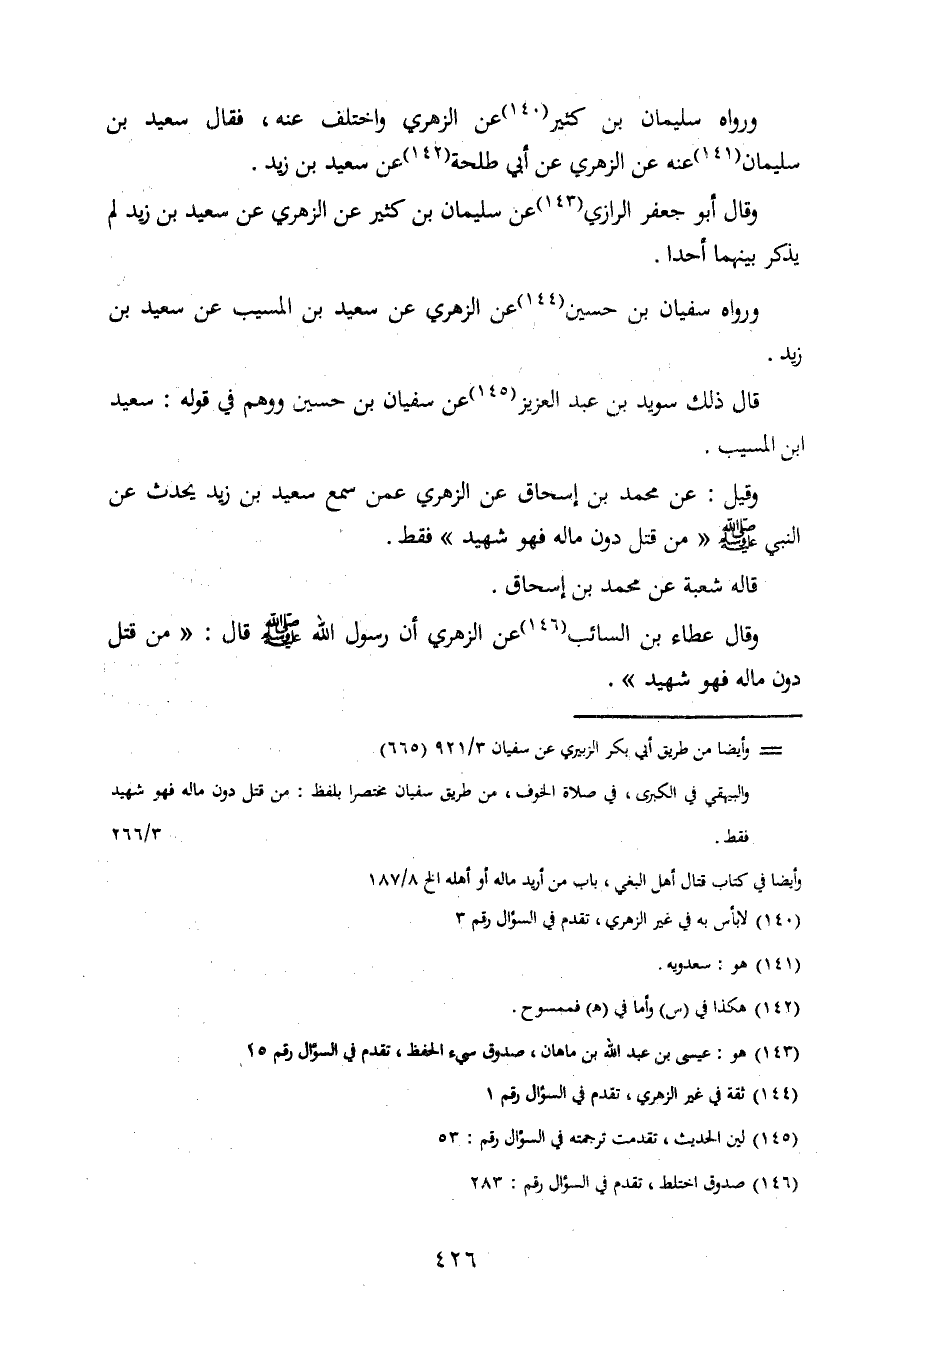 ورواه سليمان بن كثير(١٤٠)عن الزهري واختلف عنه، فقال سعيد بن
سليمان(١٤١)عنه عن الزهري عن أبي طلحة(١٤٢)عن سعيد بن زيد .
وقال أبو جعفر الرازي(١٤٣)عن سليمان بن كثير عن الزهري عن سعيد بن زيد لم
يذكر بينهما أحدا .
ورواه سفيان بن حسين(١٤٤)عن الزهري عن سعيد بن المسيب عن سعيد بن
زيد .
قال ذلك سويد بن عبد العزيز(١٤٥)عن سفيان بن حسين ووهم في قوله : سعيد
ابن المسيب .
وقيل : عن محمد بن إسحاق عن الزهري عمن سمع سعيد بن زيد يحدث عن
النبي ﷺ « من قتل دون ماله فهو شهيد » فقط .
قاله شعبة عن محمد بن إسحاق .
وقال عطاء بن السائب(١٤٦)عن الزهري أن رسول الله ﷺ قال : « من قتل
دون ماله فهو شهيد » .
= وأيضا من طريق أبي بكر الزبيري عن سفيان ٩٢١/٣ (٦٦٥)
والبيهقي في الكبرى ، في صلاة الخوف ، من طريق سفيان مختصرا بلفظ : من قتل دون ماله فهو شهيد
فقط . ٢٦٦/٣
وأيضا في كتاب قتال أهل البغي ، باب من أريد ماله أو أهله الخ ١٨٧/٨
(١٤٠) لابأس به في غير الزهري ، تقدم في السؤال رقم ٣
(١٤١) هو : سعدويه .
(١٤٢) هكذا في (س) وأما في (ه) فممسوح .
(١٤٣) هو : عيسى بن عبد الله بن ماهان ، صدوق سيء الحفظ ، تقدم في السؤال رقم ١٥
(١٤٤) ثقة في غير الزهري ، تقدم في السؤال رقم ١
(١٤٥) لين الحديث ، تقدمت ترجمته في السؤال رقم : ٥٣
(١٤٦) صدوق اختلط ، تقدم في السؤال رقم : ٢٨٣
٤٢٦